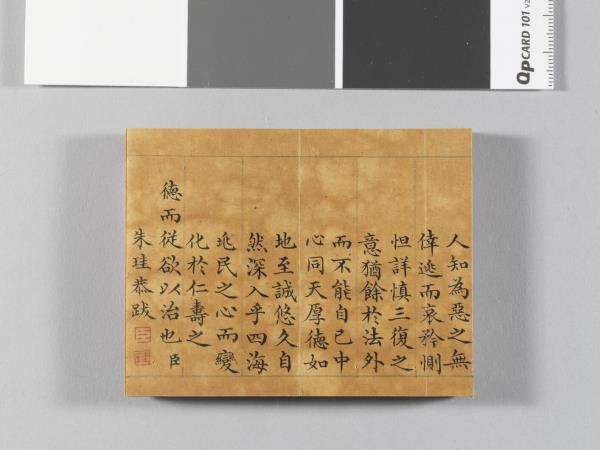 人知為惡之無
倖逃而哀矜惻
怛詳慎三復之
意猶餘於法外
而不能自已中
心同天厚德如
地至誠悠久自
然深入乎四海
兆民之心而變
化於仁壽之
德而從欲以治也臣
朱珪恭跋
QpCARD 101 v2